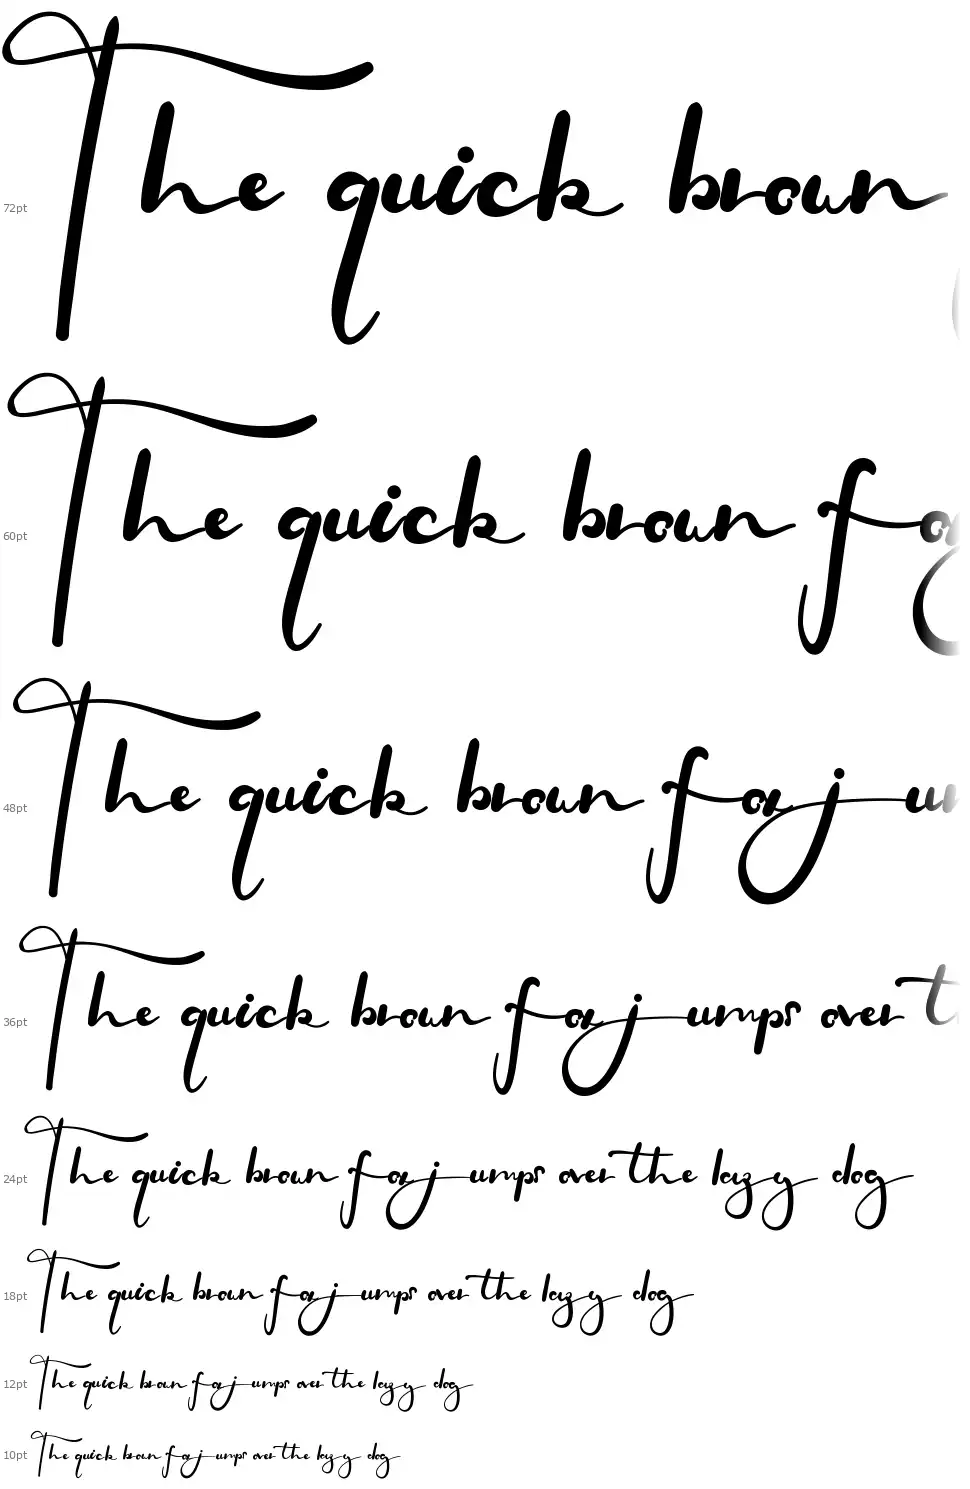 72pt The quick brown
60pt The quick brown fo
48pt The quick brown fox ju
36pt The quick brown fox jumps over t
24pt The quick brown fox jumps over the lazy dog
18pt The quick brown fox jumps over the lazy dog
12pt The quick brown fox jumps over the lazy dog
10pt The quick brown fox jumps over the lazy dog